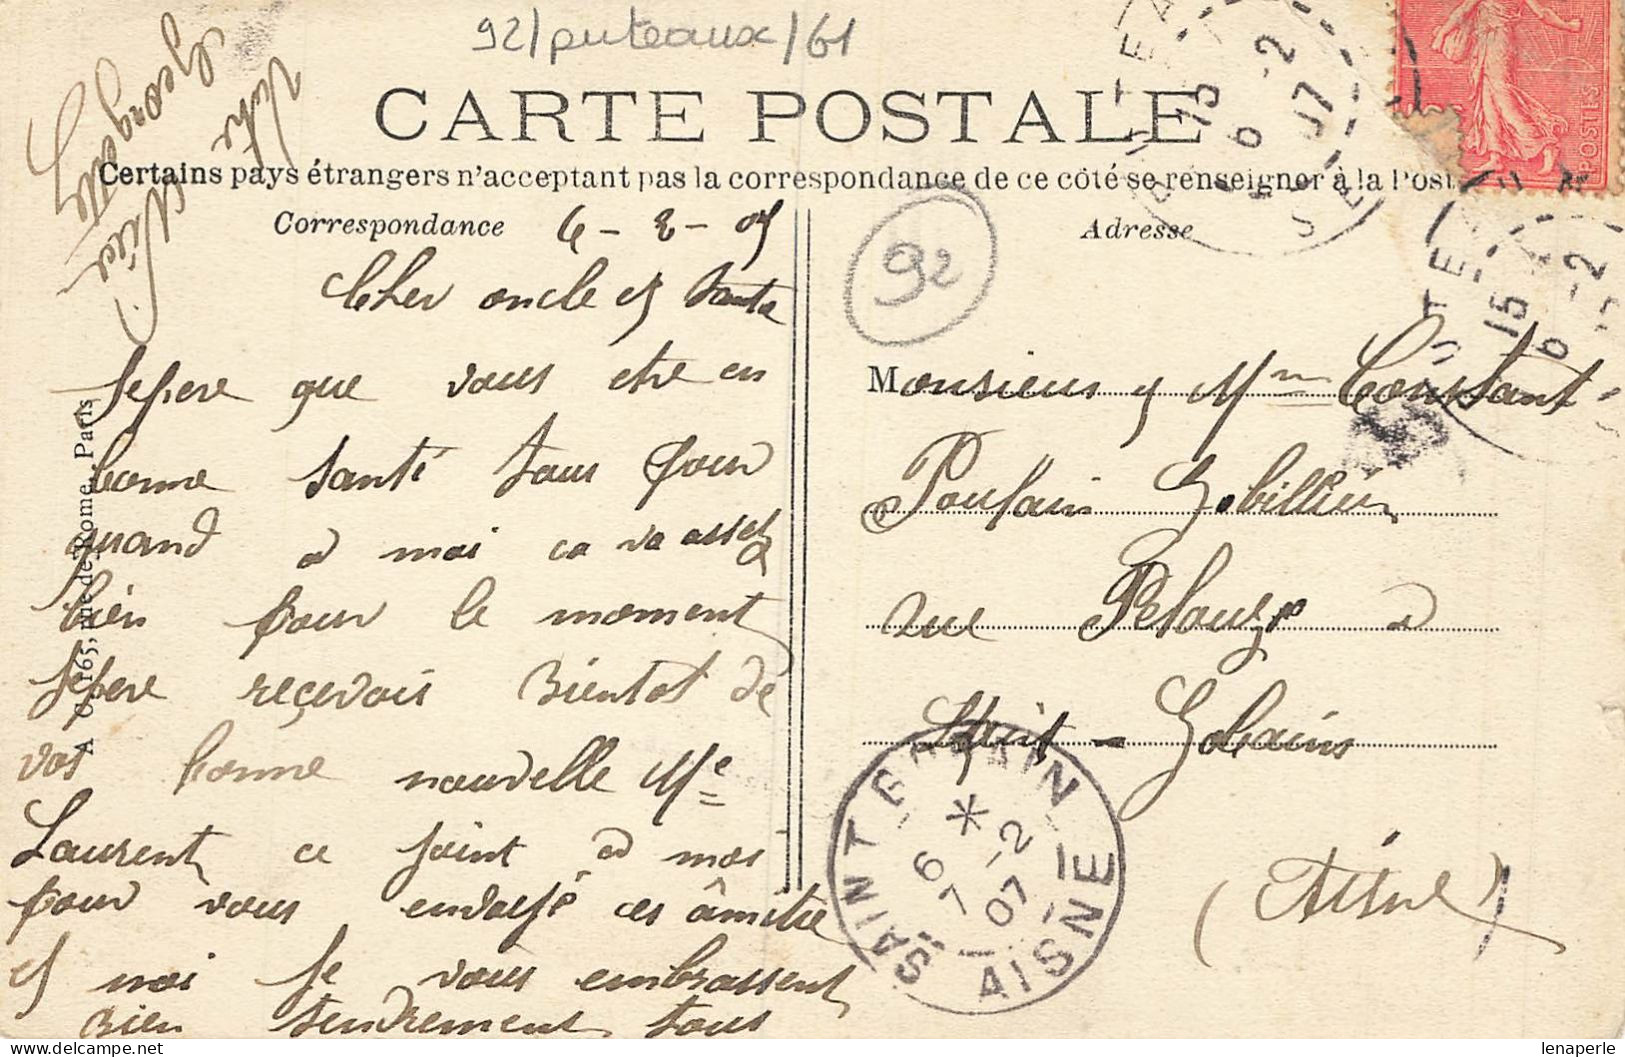 92/puteaux/61
CARTE POSTALE
Certains pays étrangers n'acceptant pas la correspondance de ce côté se renseigner à la Post
Correspondance
6-2-07
Cher oncle et tante
Jespere que vous etre en
bonne santé tous pour
quand a moi ca va assez
bien pour le moment
Jespere reçevois Bientot de
vos bonne nouvelle Me
Laurent ce joint a moi
pour vous envoyé ces âmitie
et moi je vous embrassent
Bien tendrement tous
Votre Nièce
Georgette
A
165, rue de Rome, Paris
92
Adresse
Monsieur et Mme Constant
Poulain Gobillien
rue Pelouze a
Saint-Gobains
(Aisne)
SAINT GOBAIN
*
6
7 -2
07
AISNE
15
6 -2
07
15
6 -2
POSTES
lenaperle